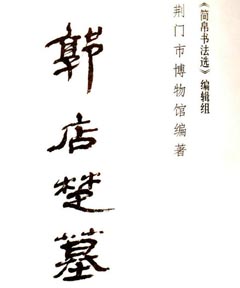 《简帛书法选》编辑组
荆门市博物馆编著
郭店楚墓